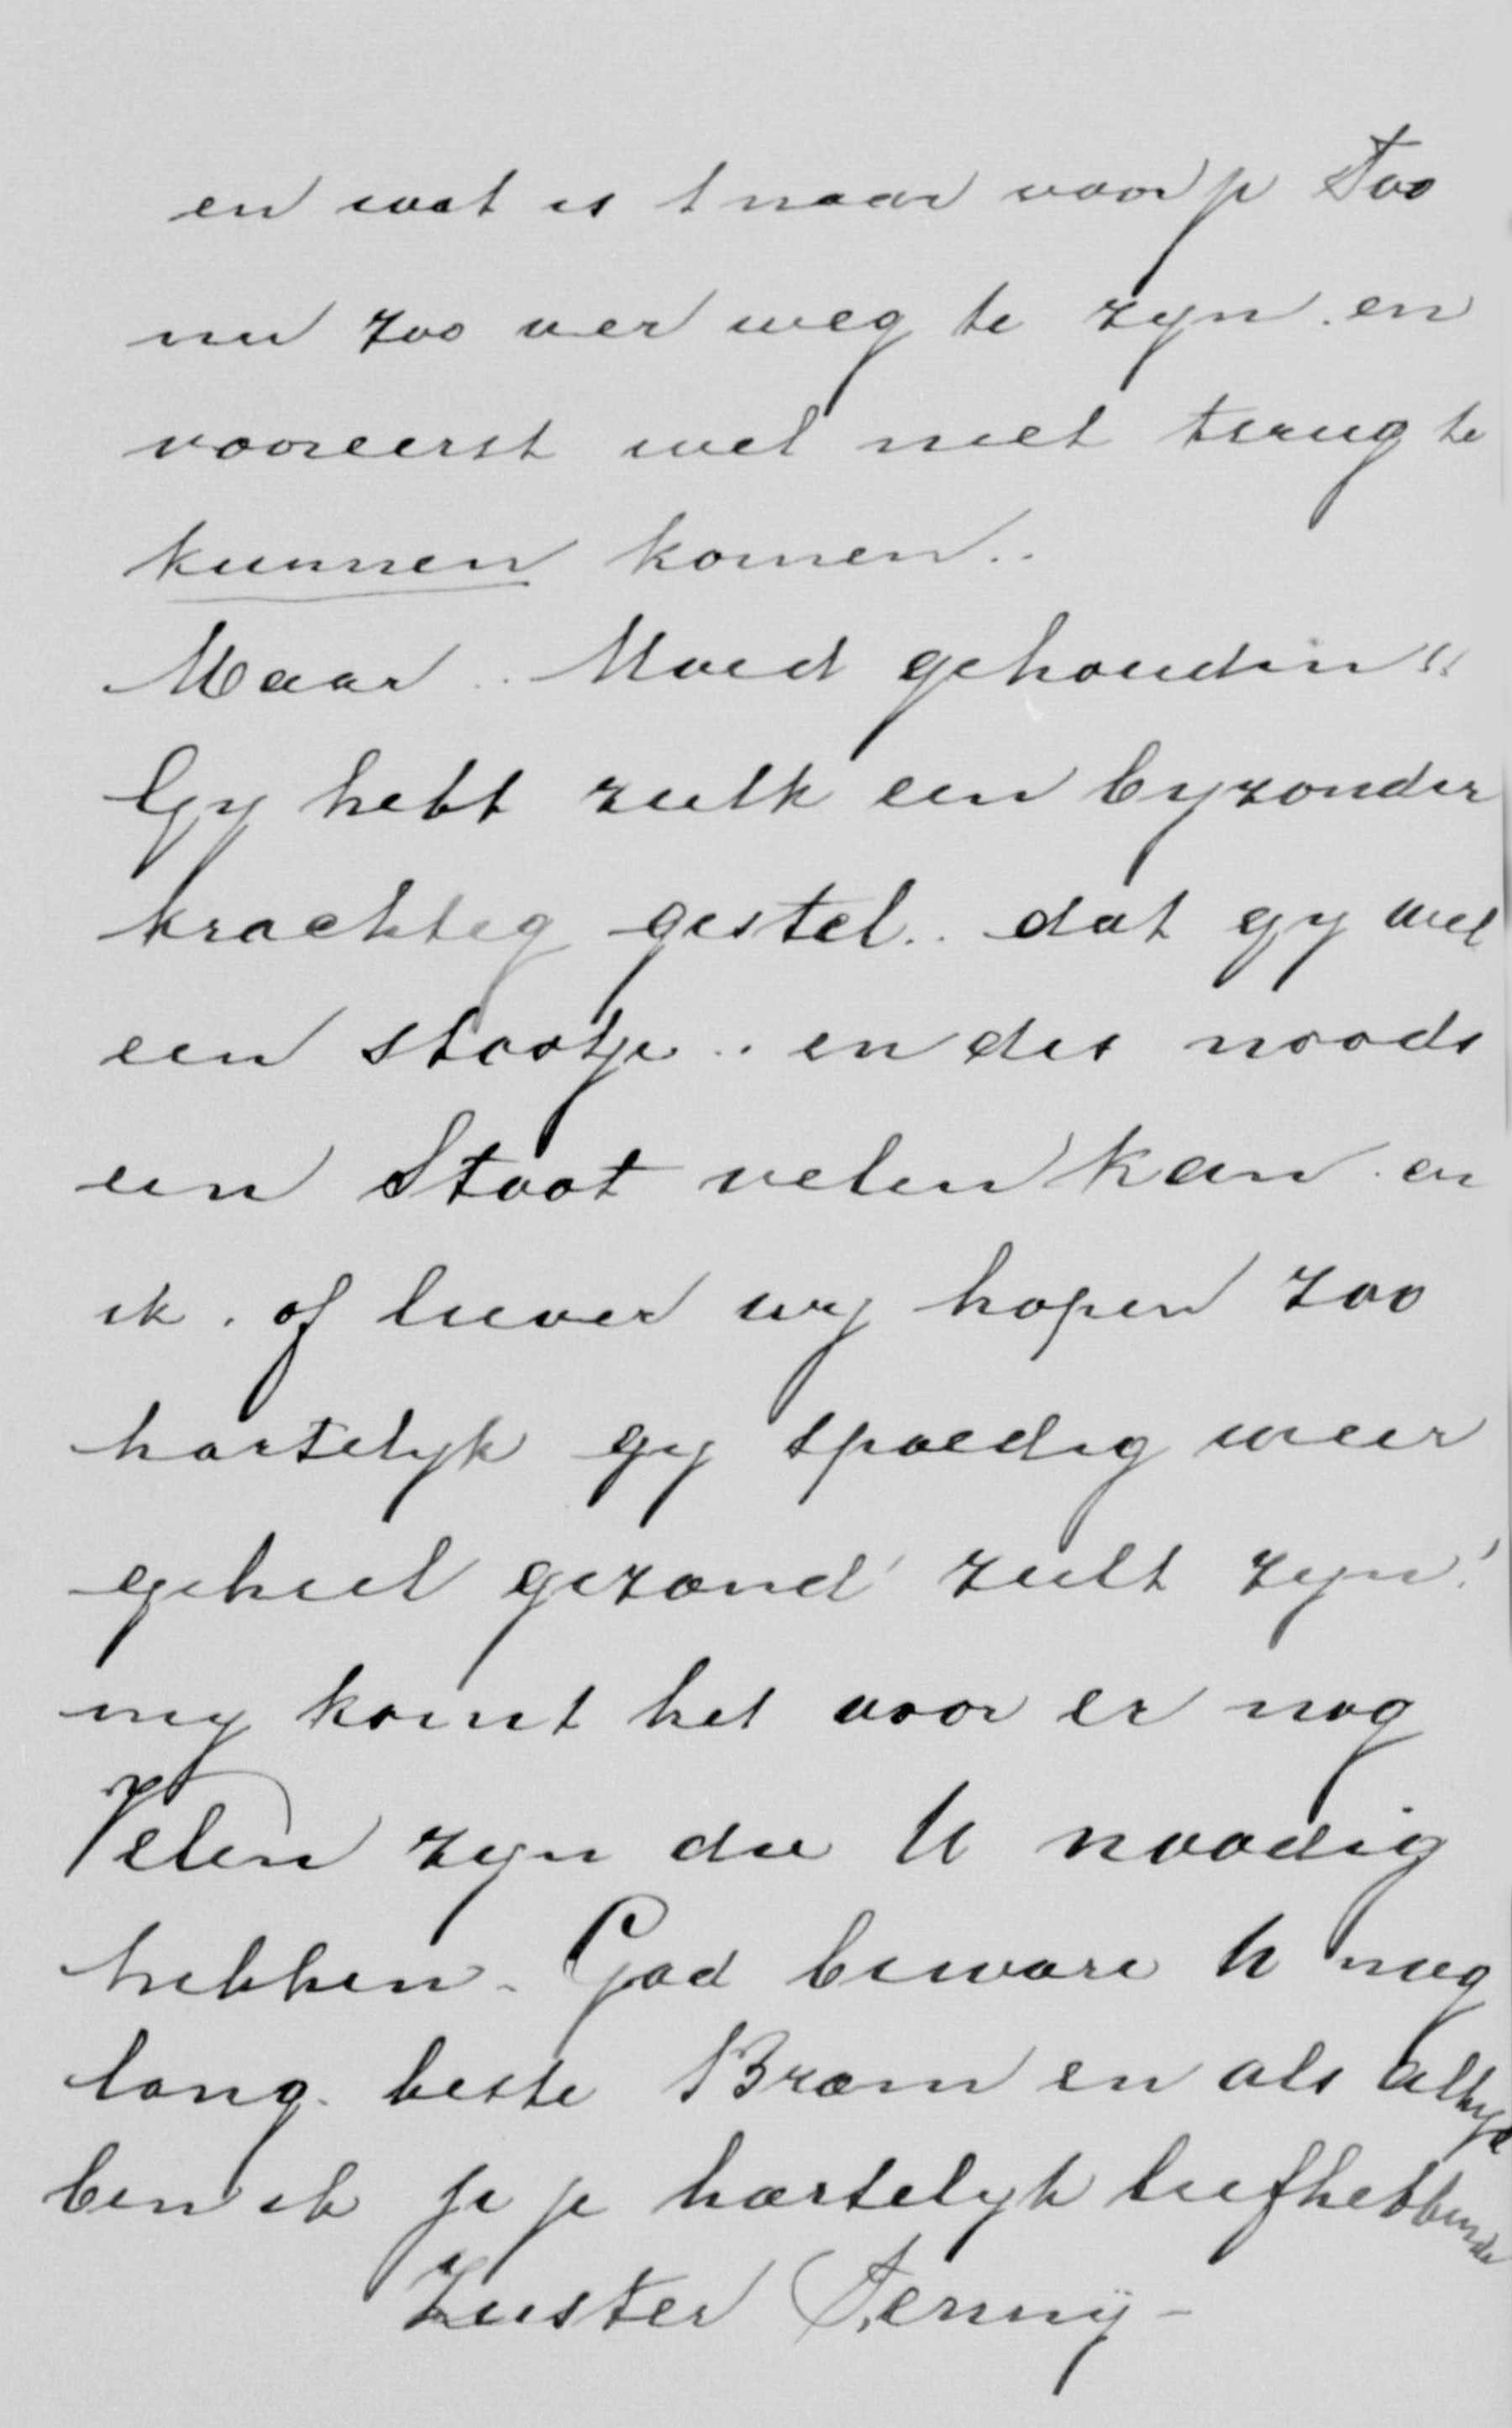 en wat is t naar voor je Too
nu zoo ver weg te zyn. en
vooreerst wel niet terug te
kunnen komen..
Maar.. Moed gehouden"
Gy hebt zulk een byzonder
krachtig gestel.. dat gy wel
een stootje.. en des noods
een Stoot velen kan. en
ik. of liever wy hopen zoo
hartelyk gy spoedig weer
geheel gezond zult zyn!
my komt het voor er nog
Velen zyn die U noodig
hebben - God beware U nog
lang. beste Bram en als altyd
ben ik je je hartelyk liefhebbende
Zuster Jenny -